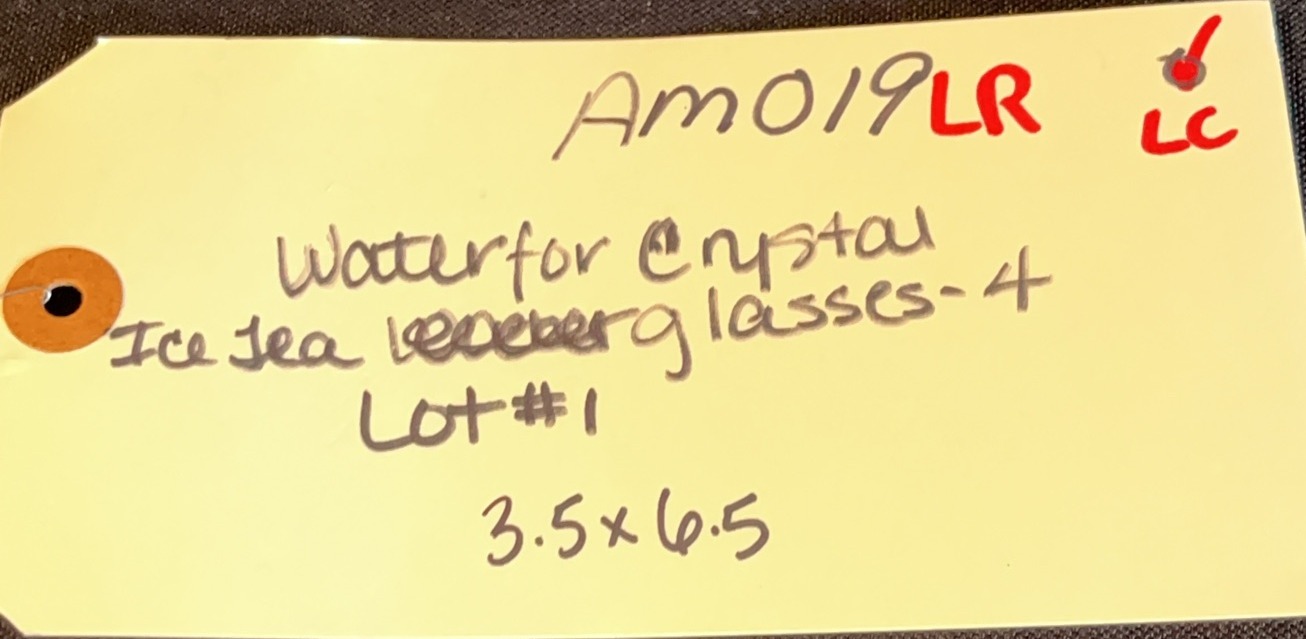 Am019LR
LC
Waterfor Crystal
Ice Tea glasses-4
Lot #1
3.5x6.5